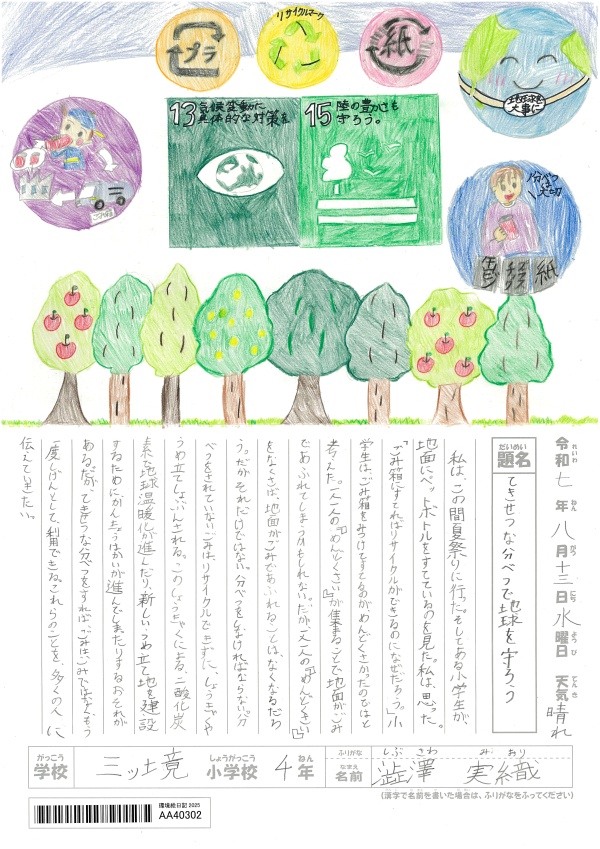 プラ
リサイクルマーク
紙
地球を
大事に
13 気候変動に
具体的な対策を
15 陸の豊かさも
守ろう。
分べつ
は
大切
紙
令和七年八月十三日水曜日 天気 晴れ
れいわ ねん がつ にち ようび てんき
だいめい
題名
てきせつな分べつで地球を守ろう
私は、この間夏祭りに行った。そしてある小学生が、
地面にペットボトルをすてているのを見た。私は、思った。
「ごみ箱にすてればリサイクルができるのになぜだろう。」小
学生は、ごみ箱をみつけてすてるのがめんどくさかったのではと
考えた。一人一人の「めんどくさい」が集まることで地面がごみ
であふれてしまうかもしれない。だが、一人一人の「めんどくさい」
をなくせば、地面がごみであふれることは、なくなるだろ
う。だがそれだけではない。分べつをしなければならない。分
べつをされていないごみは、リサイクルできずに、しょうきゃくや
うめ立てしょぶんされる。このしょうきゃくによる、二酸化炭
素で地球温暖化が進んだり、新しいうめ立て地を建設
するためにかんきょうはかいが進んでしまったりするおそれが
ある。だが、てきせつな分べつをすれば、ごみは、ごみではなくもう
一度しげんとして、利用できる。これらのことを、多くの人に
伝えていきたい。
がっこう
学校
三ッ境
しょうがっこう
小学校
4
ねん
年
ふりがな
なまえ
名前
しぶ さわ み おり
澁澤 実織
(漢字で名前を書いた場合は、ふりがなをふってください)
環境絵日記 2025
AA40302